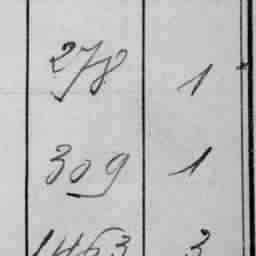 278 1
309 1
1463 3